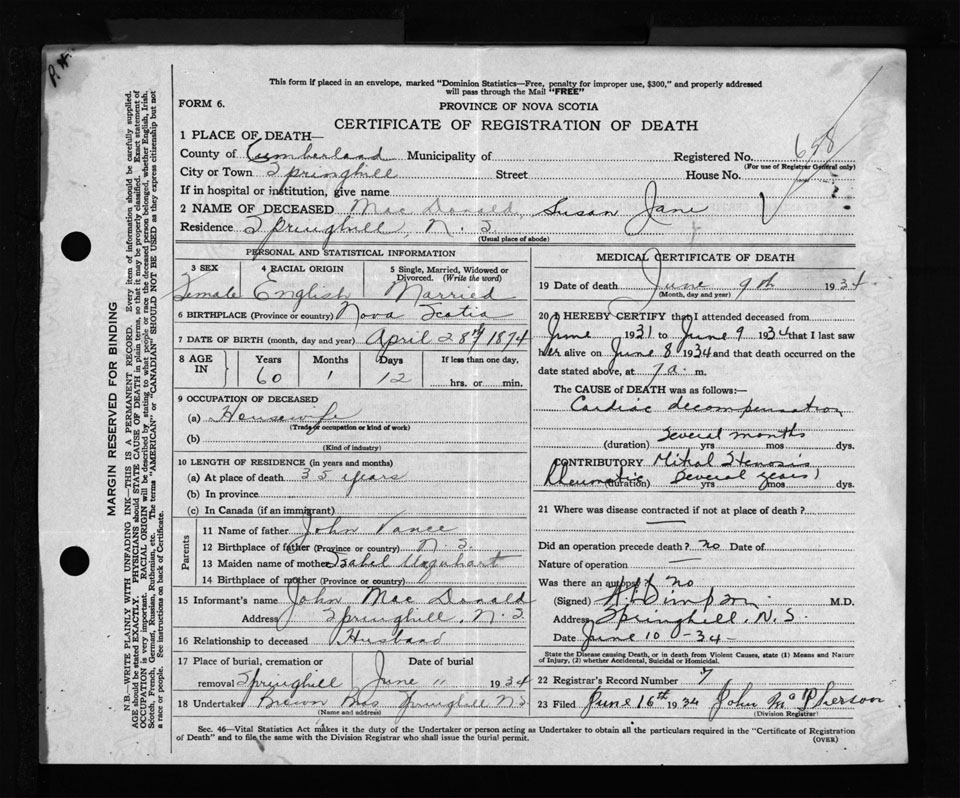 P. H.
This form if placed in an envelope, marked "Dominion Statistics—Free, penalty for improper use, $300," and properly addressed
will pass through the Mail "FREE"
FORM 6.
PROVINCE OF NOVA SCOTIA
CERTIFICATE OF REGISTRATION OF DEATH
1 PLACE OF DEATH—
County of Cumberland Municipality of Registered No. 658
(For use of Registrar General only)
City or Town Springhill Street House No.
If in hospital or institution, give name
2 NAME OF DECEASED Mac Donald, Susan Jane
Residence Springhill, N. S.
(Usual place of abode)
PERSONAL AND STATISTICAL INFORMATION
3 SEX 4 RACIAL ORIGIN 5 Single, Married, Widowed or
Divorced. (Write the word)
Female English Married
6 BIRTHPLACE (Province or country) Nova Scotia
7 DATE OF BIRTH (month, day and year) April 28th 1874
8 AGE IN Years Months Days If less than one day,
60 1 12 hrs. or min.
9 OCCUPATION OF DECEASED
(a) Housewife
(Trade occupation or kind of work)
(b)
(Kind of industry)
10 LENGTH OF RESIDENCE (in years and months)
(a) At place of death 35 years
(b) In province
(c) In Canada (if an immigrant)
Parents
11 Name of father John Vance
12 Birthplace of father (Province or country) N. S.
13 Maiden name of mother Isabel Urquhart
14 Birthplace of mother (Province or country)
15 Informant's name John Mac Donald
Address Springhill, N. S.
16 Relationship to deceased Husband
17 Place of burial, cremation or Date of burial
removal Springhill June 11 1934
18 Undertaker Brown Bros Springhill N S
(Name and address)
MEDICAL CERTIFICATE OF DEATH
19 Date of death June 9th 1934
(Month, day and year)
20 I HEREBY CERTIFY that I attended deceased from
June 1931 to June 9 1934 that I last saw
her alive on June 8 1934 and that death occurred on the
date stated above, at 7 a. m.
The CAUSE of DEATH was as follows:—
Cardiac decompensation
Several months
(duration) yrs mos dys.
CONTRIBUTORY Mitral Stenosis
Rheumatic (duration) Several years yrs mos dys.
21 Where was disease contracted if not at place of death?
Did an operation precede death? no Date of
Nature of operation —
Was there an autopsy? no
(Signed) M.D.
Address Springhill, N. S.
Date June 10 - 34 -
State the Disease causing Death, or in death from Violent Causes, state (1) Means and Nature
of Injury, (2) whether Accidental, Suicidal or Homicidal.
22 Registrar's Record Number 7
23 Filed June 16th 1934 John McPherson
(Division Registrar)
Sec. 46—Vital Statistics Act makes it the duty of the Undertaker or person acting as Undertaker to obtain all the particulars required in the "Certificate of Registration
of Death" and to file the same with the Division Registrar who shall issue the burial permit. (OVER)
MARGIN RESERVED FOR BINDING
N.B.—WRITE PLAINLY WITH UNFADING INK—THIS IS A PERMANENT RECORD. Every item of information should be carefully supplied.
AGE should be stated EXACTLY. PHYSICIANS should STATE CAUSE OF DEATH in plain terms, so that it may be properly classified. Exact statement of
OCCUPATION is very important. RACIAL ORIGIN will be described by stating to what people or race the deceased person belonged, whether English, Irish,
Scotch, French, German, Russian, Ruthenian, etc. The terms "AMERICAN" or "CANADIAN" SHOULD NOT BE USED as they express citizenship but not
a race or people. See instructions on back of Certificate.